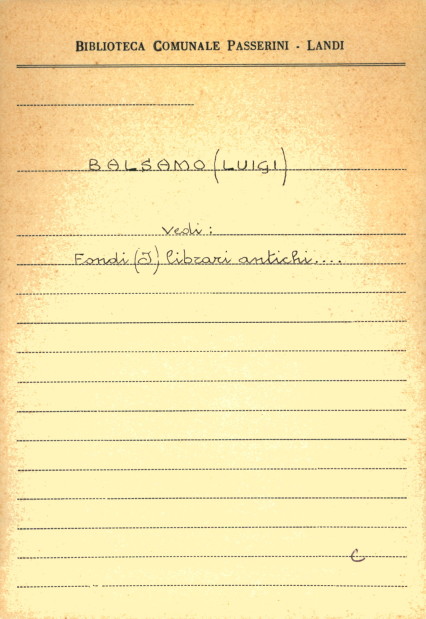 BIBLIOTECA COMUNALE PASSERINI - LANDI
BALSAMO (LUIGI)
Vedi:
Fondi (I) librari antichi....
C